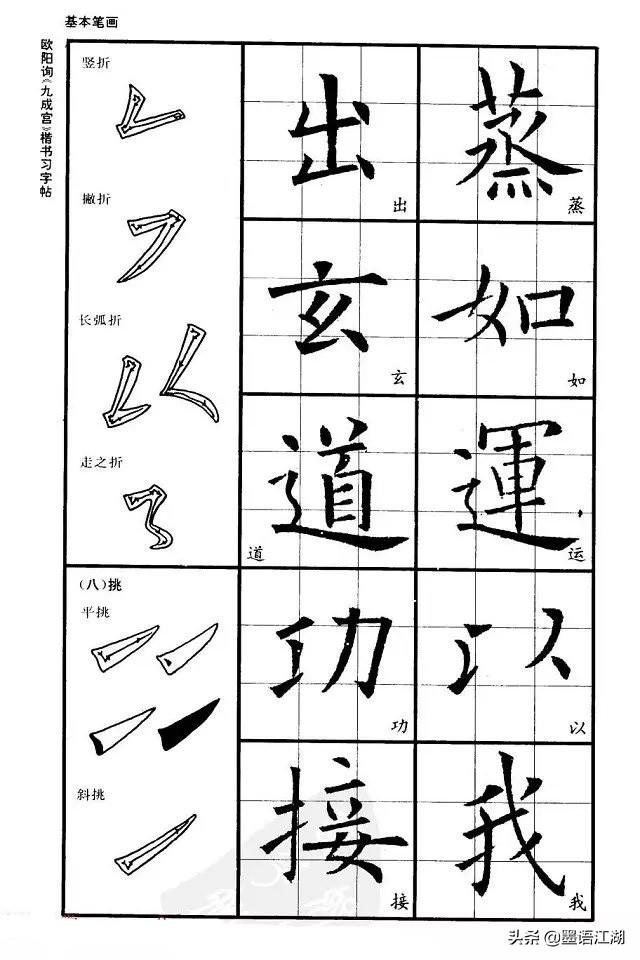 基本笔画
欧阳询《九成宫》楷书习字帖
竖折
出 蒸
出 蒸
撇折
玄 如
玄 如
长弧折
走之折
道 運
道 运
(八)挑
平挑
功 以
功 以
斜挑
接 我
接 我
头条@墨语江湖